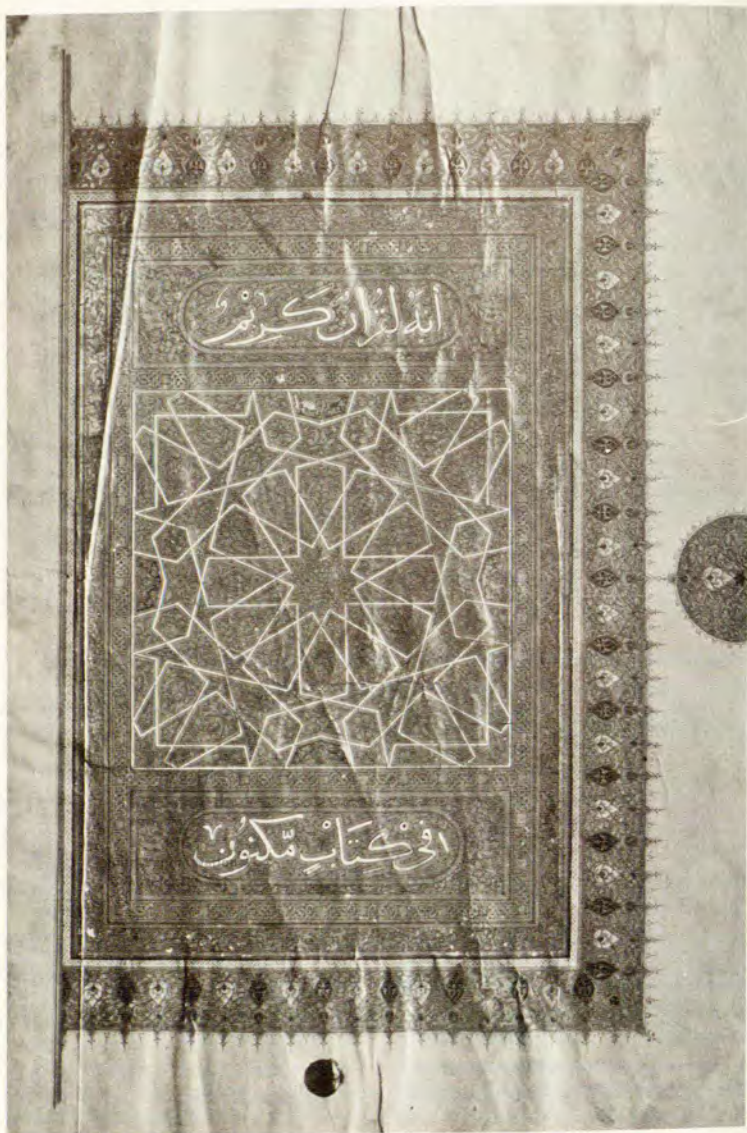 انه لقرآن كريم
في كتاب مكنون